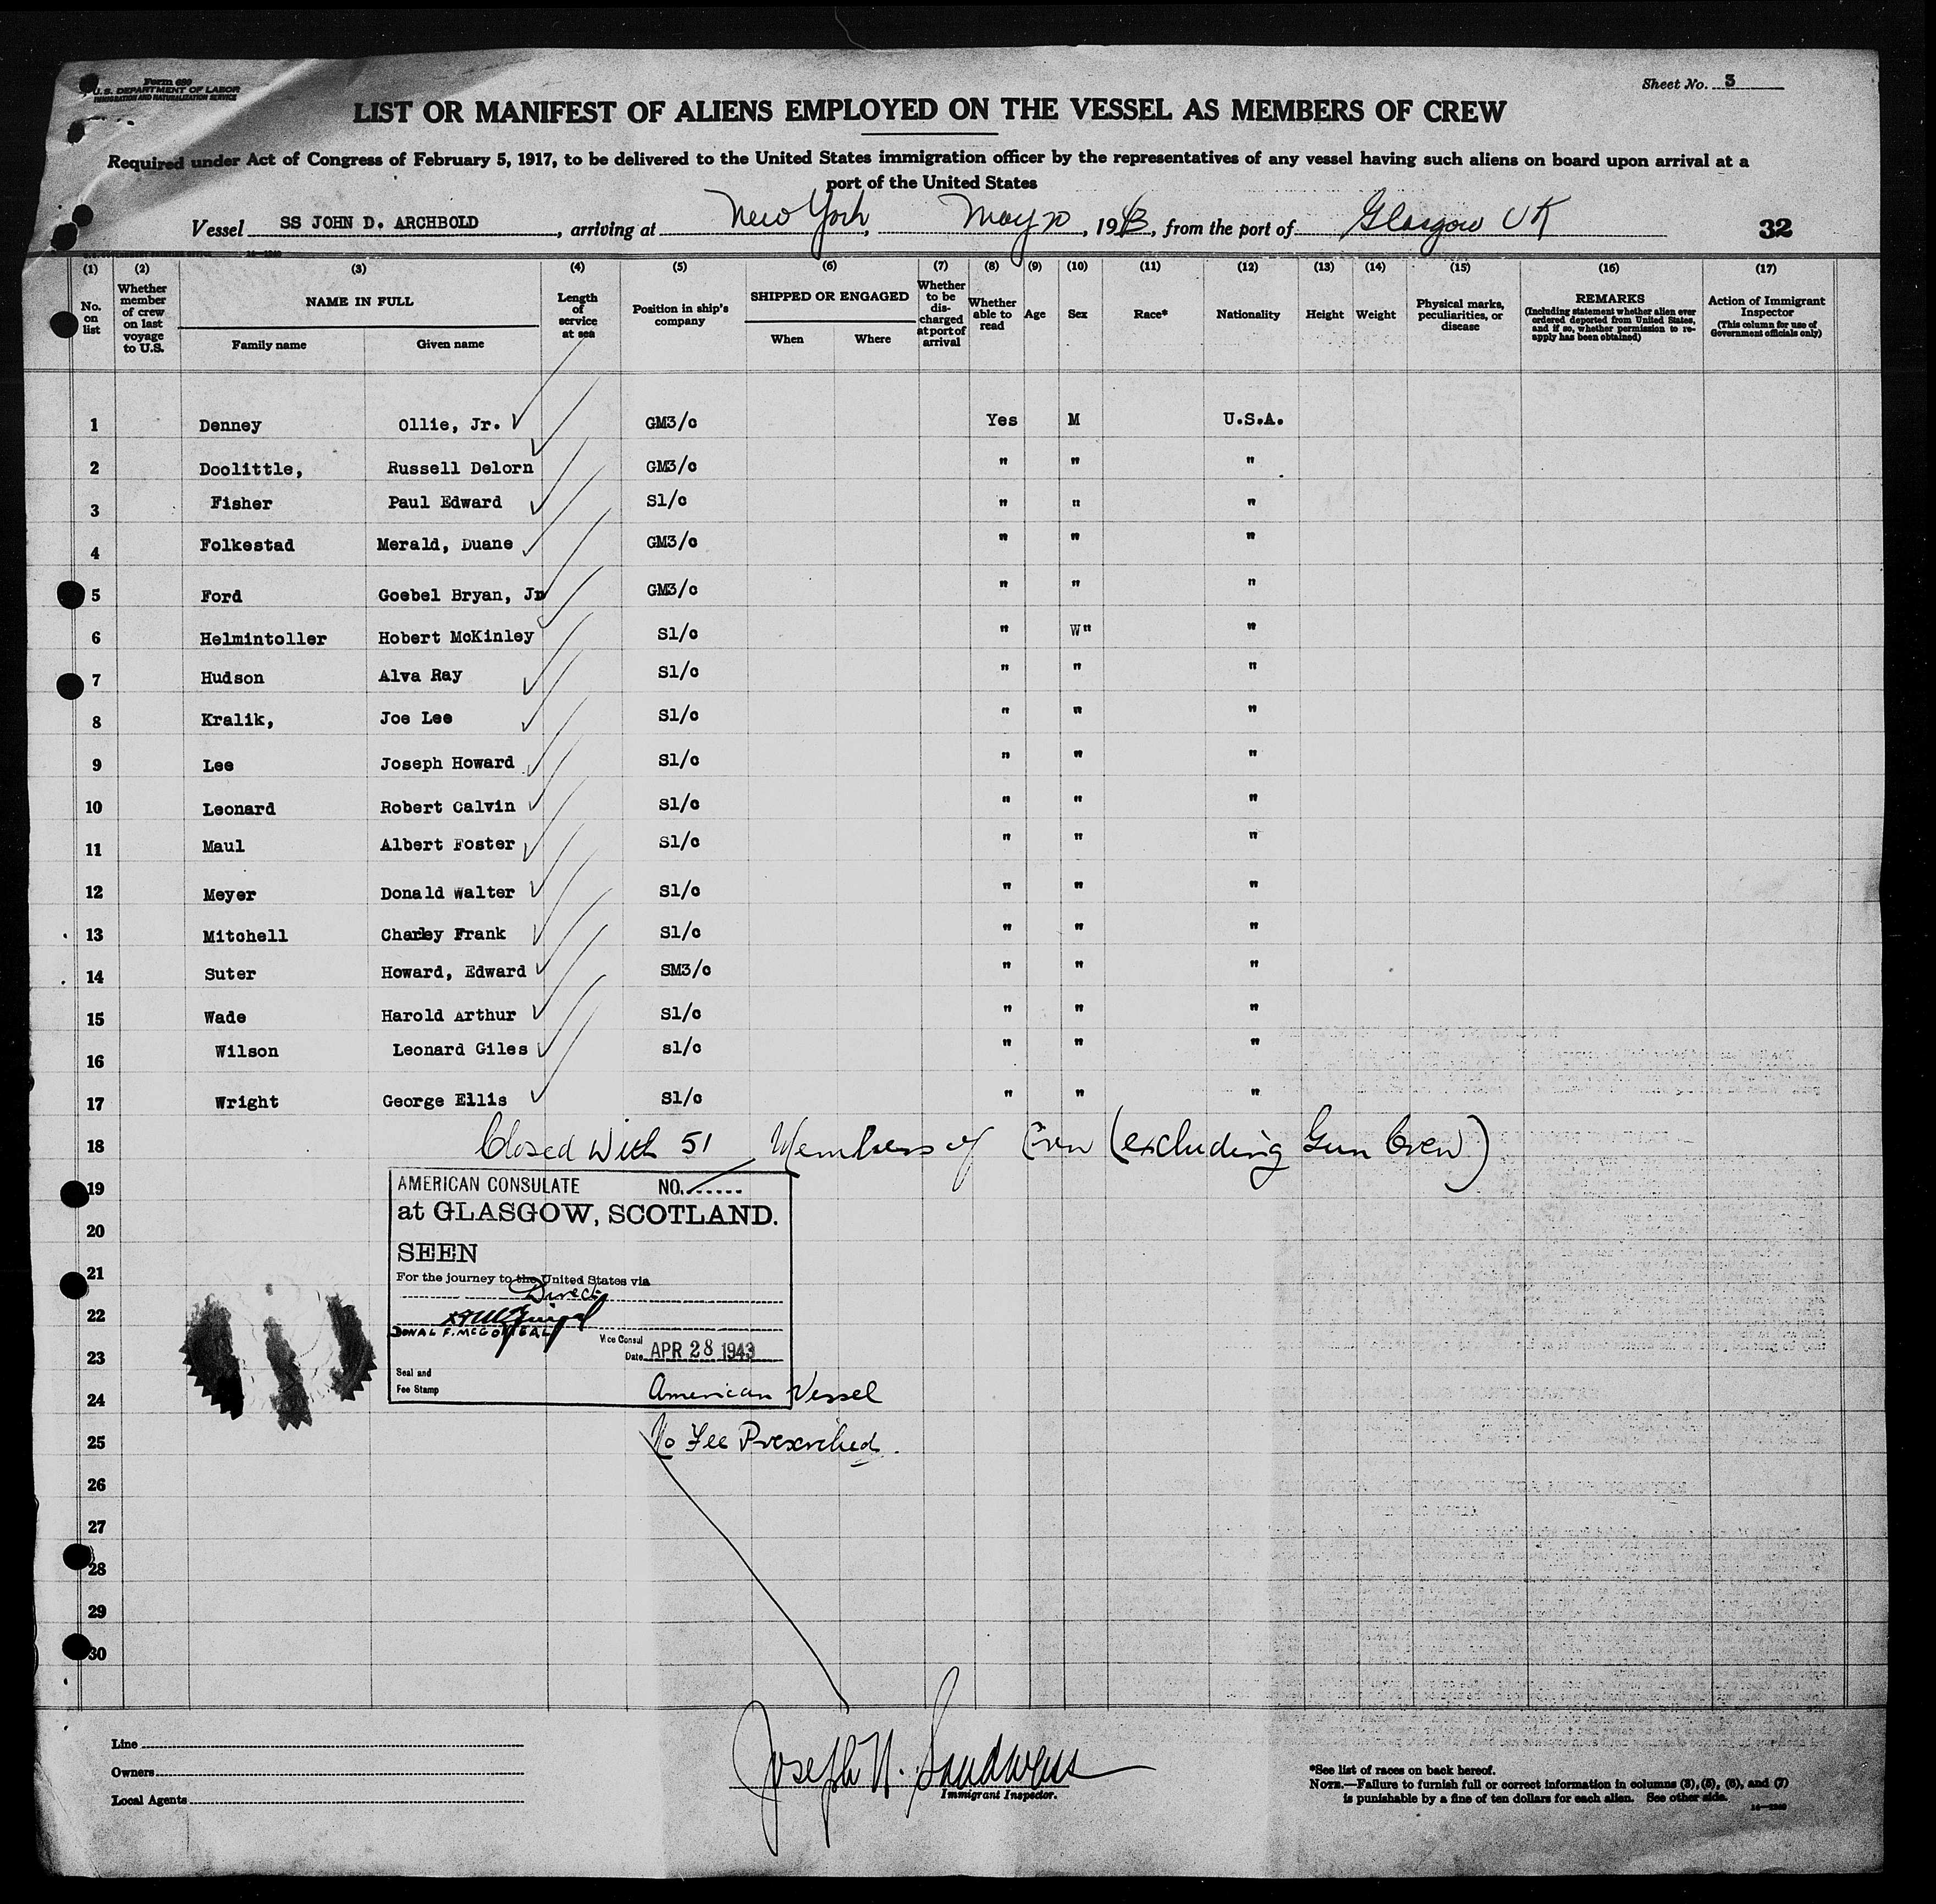 Form 680
U.S. DEPARTMENT OF LABOR
IMMIGRATION AND NATURALIZATION SERVICE
Sheet No. 3
LIST OR MANIFEST OF ALIENS EMPLOYED ON THE VESSEL AS MEMBERS OF CREW
Required under Act of Congress of February 5, 1917, to be delivered to the United States immigration officer by the representatives of any vessel having such aliens on board upon arrival at a
port of the United States
Vessel SS JOHN D. ARCHBOLD, arriving at New York, May 20, 1943, from the port of Glasgow UK 32
(1) (2) (3) (4) (5) (6) (7) (8) (9) (10) (11) (12) (13) (14) (15) (16) (17)
No. on list Whether member of crew on last voyage to U.S. NAME IN FULL Family name Given name Length of service at sea Position in ship's company SHIPPED OR ENGAGED When Where Whether to be discharged at port of arrival Whether able to read Age Sex Race* Nationality Height Weight Physical marks, peculiarities, or disease REMARKS (Including statement whether alien ever ordered deported from United States, and if so, whether permission to reapply has been obtained) Action of Immigrant Inspector (This column for use of Government officials only)
1 Denney Ollie, Jr. GM3/c Yes M U.S.A.
2 Doolittle, Russell Delorn GM3/c " " "
3 Fisher Paul Edward S1/c " " "
4 Folkestad Merald, Duane GM3/c " " "
5 Ford Goebel Bryan, Jr GM3/c " " "
6 Helmintoller Hobert McKinley S1/c " W" "
7 Hudson Alva Ray S1/c " " "
8 Kralik, Joe Lee S1/c " " "
9 Lee Joseph Howard S1/c " " "
10 Leonard Robert Calvin S1/c " " "
11 Maul Albert Foster S1/c " " "
12 Meyer Donald Walter S1/c " " "
13 Mitchell Charley Frank S1/c " " "
14 Suter Howard, Edward SM3/c " " "
15 Wade Harold Arthur S1/c " " "
16 Wilson Leonard Giles s1/c " " "
17 Wright George Ellis S1/c " " "
18 Closed With 51 Members of Crew (excluding Gun Crew)
19 AMERICAN CONSULATE NO.......
20 at GLASGOW, SCOTLAND.
SEEN
21 For the journey to the United States via
Direct
22 DONAL F. McGONIGAL
Vice Consul
23 Date APR 28 1943
Seal and
Fee Stamp
24 American Vessel
25 No Fee Prescribed.
26
27
28
29
30
Line
Owners
Local Agents
Joseph N. Sandweiss
Immigrant Inspector.
*See list of races on back hereof.
NOTE.—Failure to furnish full or correct information in columns (3), (5), (6), and (7)
is punishable by a fine of ten dollars for each alien. See other side.